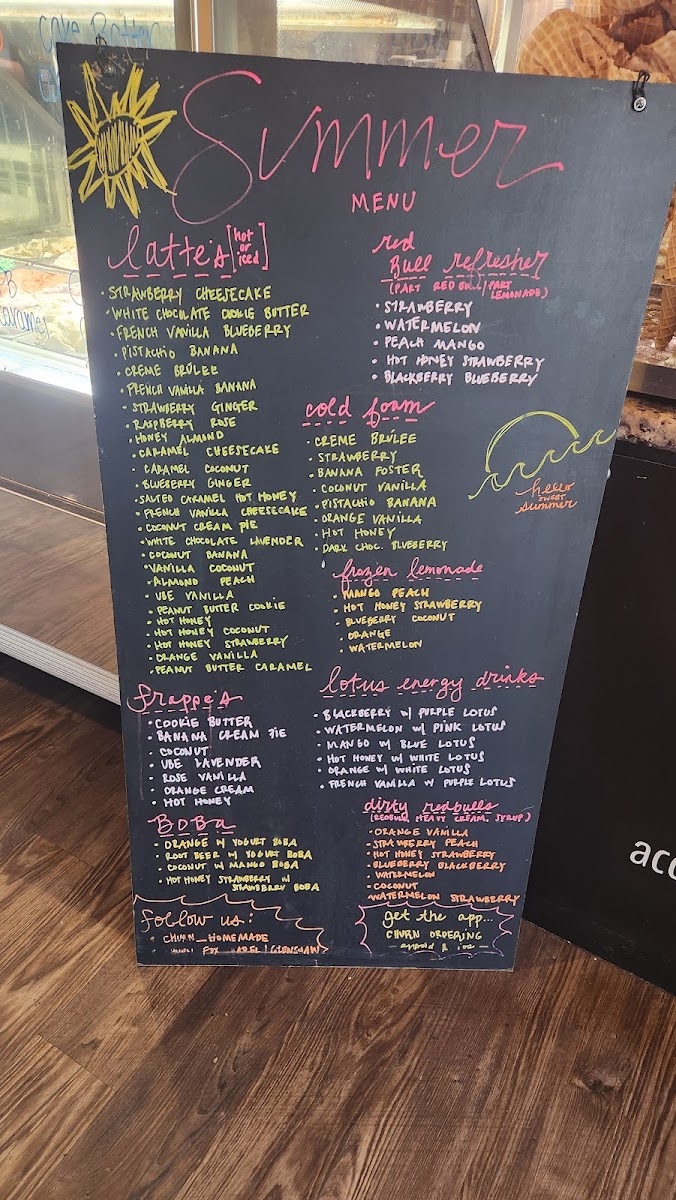 Cake Batter
Caramel
Summer
MENU
latte's [hot or iced]
• STRAWBERRY CHEESECAKE
• WHITE CHOCOLATE COOKIE BUTTER
• FRENCH VANILLA BLUEBERRY
• PISTACHIO BANANA
• CREME BRÛLEE
• FRENCH VANILLA BANANA
• STRAWBERRY GINGER
• RASPBERRY ROSE
• HONEY ALMOND
• CARAMEL CHEESECAKE
• CARAMEL COCONUT
• BLUEBERRY GINGER
• SALTED CARAMEL HOT HONEY
• FRENCH VANILLA CHEESECAKE
• COCONUT CREAM PIE
• WHITE CHOCOLATE LAVENDER
• COCONUT BANANA
• VANILLA COCONUT
• ALMOND PEACH
• UBE VANILLA
• PEANUT BUTTER COOKIE
• HOT HONEY
• HOT HONEY COCONUT
• HOT HONEY STRAWBERRY
• ORANGE VANILLA
• PEANUT BUTTER CARAMEL
frappe's
• COOKIE BUTTER
• BANANA CREAM PIE
• COCONUT
• UBE LAVENDER
• ROSE VANILLA
• ORANGE CREAM
• HOT HONEY
BOBa
• ORANGE W/ YOGURT BOBA
• ROOT BEER W/ YOGURT BOBA
• COCONUT W/ MANGO BOBA
• HOT HONEY STRAWBERRY W/
STRAWBERRY BOBA
follow us:
• CHURN_HOMEMADE
red
Bull refresher
(PART RED BULL/PART
LEMONADE)
• STRAWBERRY
• WATERMELON
• PEACH MANGO
• HOT HONEY STRAWBERRY
• BLACKBERRY BLUEBERRY
cold foam
• CREME BRÛLEE
• STRAWBERRY
• BANANA FOSTER
• COCONUT VANILLA
• PISTACHIO BANANA
• ORANGE VANILLA
• HOT HONEY
• DARK CHOC. BLUEBERRY
hello
SWEET
summer
frozen lemonade
• MANGO PEACH
• HOT HONEY STRAWBERRY
• BLUEBERRY COCONUT
• ORANGE
• WATERMELON
lotus energy drinks
• BLACKBERRY W/ PURPLE LOTUS
• WATERMELON W/ PINK LOTUS
• MANGO W/ BLUE LOTUS
• HOT HONEY W/ WHITE LOTUS
• ORANGE W/ WHITE LOTUS
• FRENCH VANILLA W PURPLE LOTUS
dirty redbulls
(REDBULL, HEAVY CREAM, SYRUP)
• ORANGE VANILLA
• STRAWBERRY PEACH
• HOT HONEY STRAWBERRY
• BLUEBERRY BLACKBERRY
• WATERMELON
• COCONUT
• WATERMELON STRAWBERRY
get the app...
CHURN ORDERING
android & ios
acc